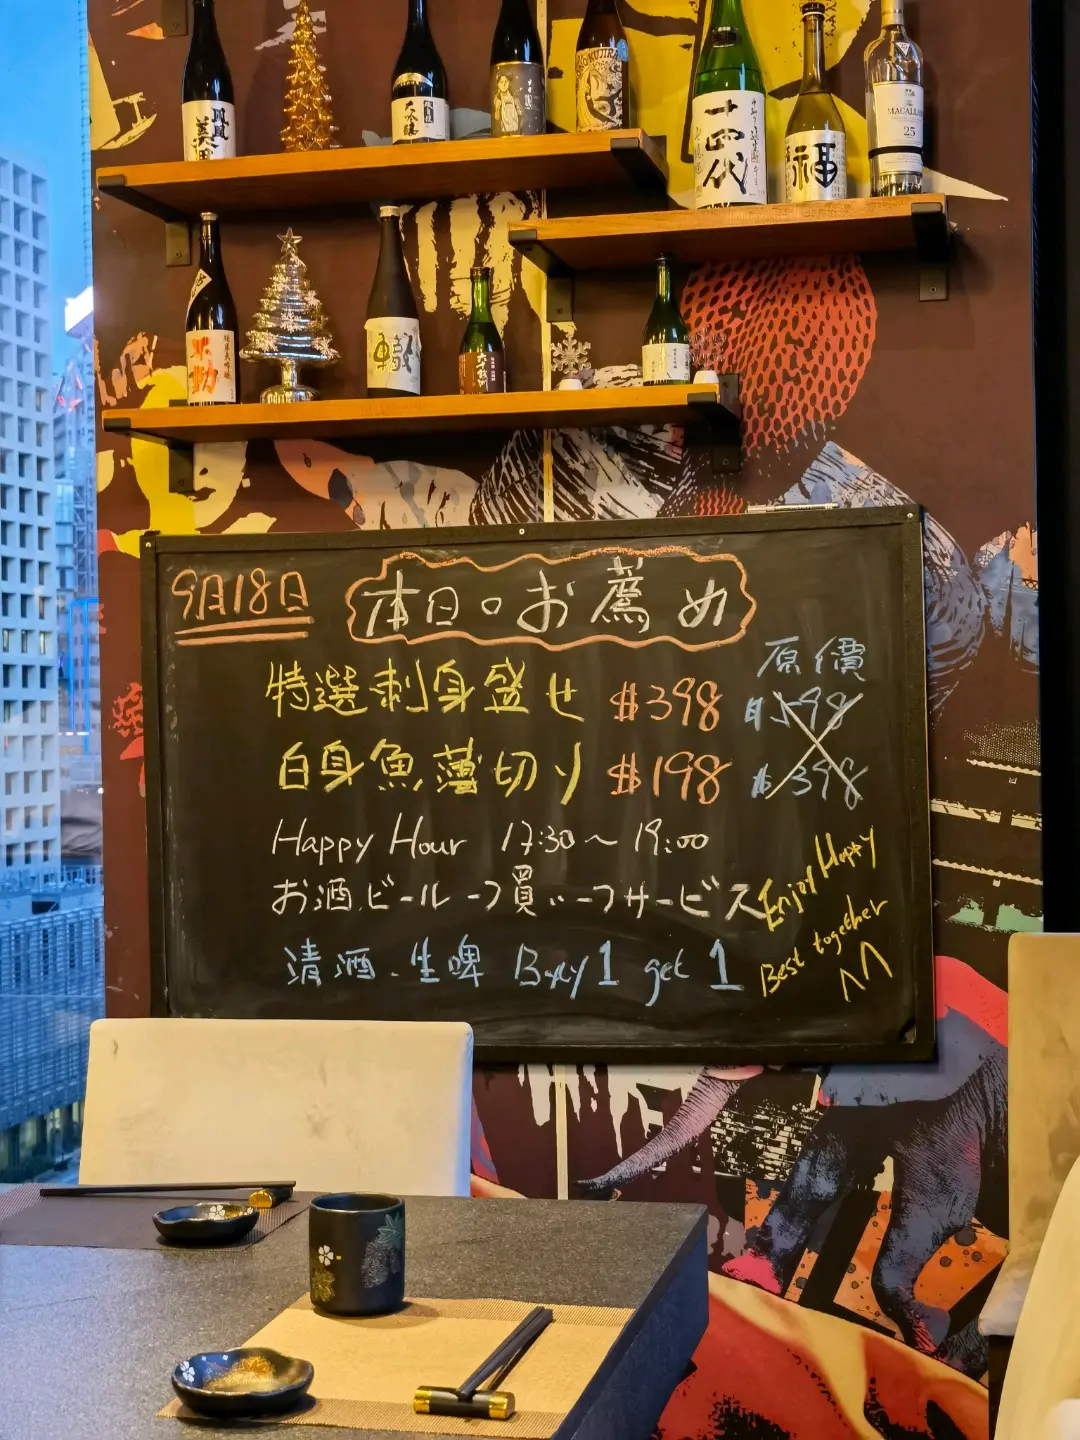 鳳凰
美田
大吟醸
十四代
福
THE
MACALLAN
25
不動
轍
9月18日
本日のお薦め
原價
特選刺身盛せ $398 $598
白身魚薄切り $198 $398
Happy Hour 17:30～19:00
お酒.ビール一つ買い一つサービス
清酒.生啤 Buy 1 get 1
Enjoy Happy
Best together